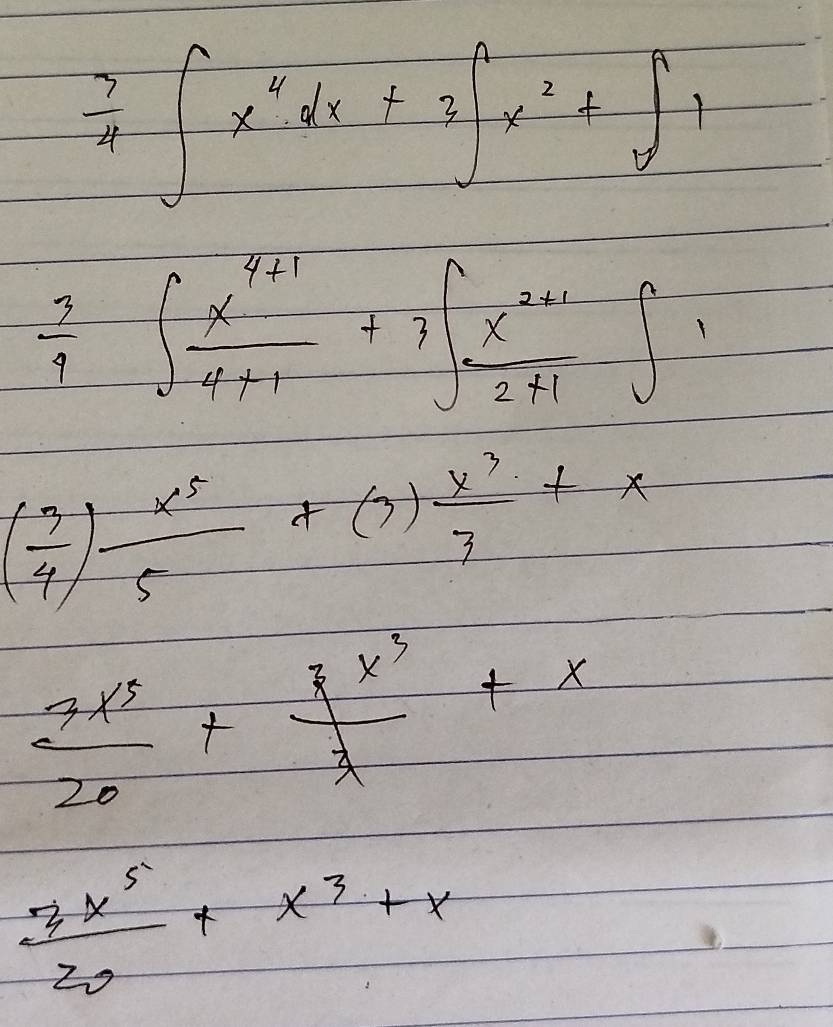 3/4 ∫ x⁴ dx + 3 ∫ x² + ∫ 1
3/4 ∫ x⁴⁺¹/4+1 + 3 ∫ x²⁺¹/2+1 ∫ 1
(3/4) x⁵/5 + (3) x³/3 + x
3x⁵/20 + 3x³/3 + x
3x⁵/20 + x³ + x